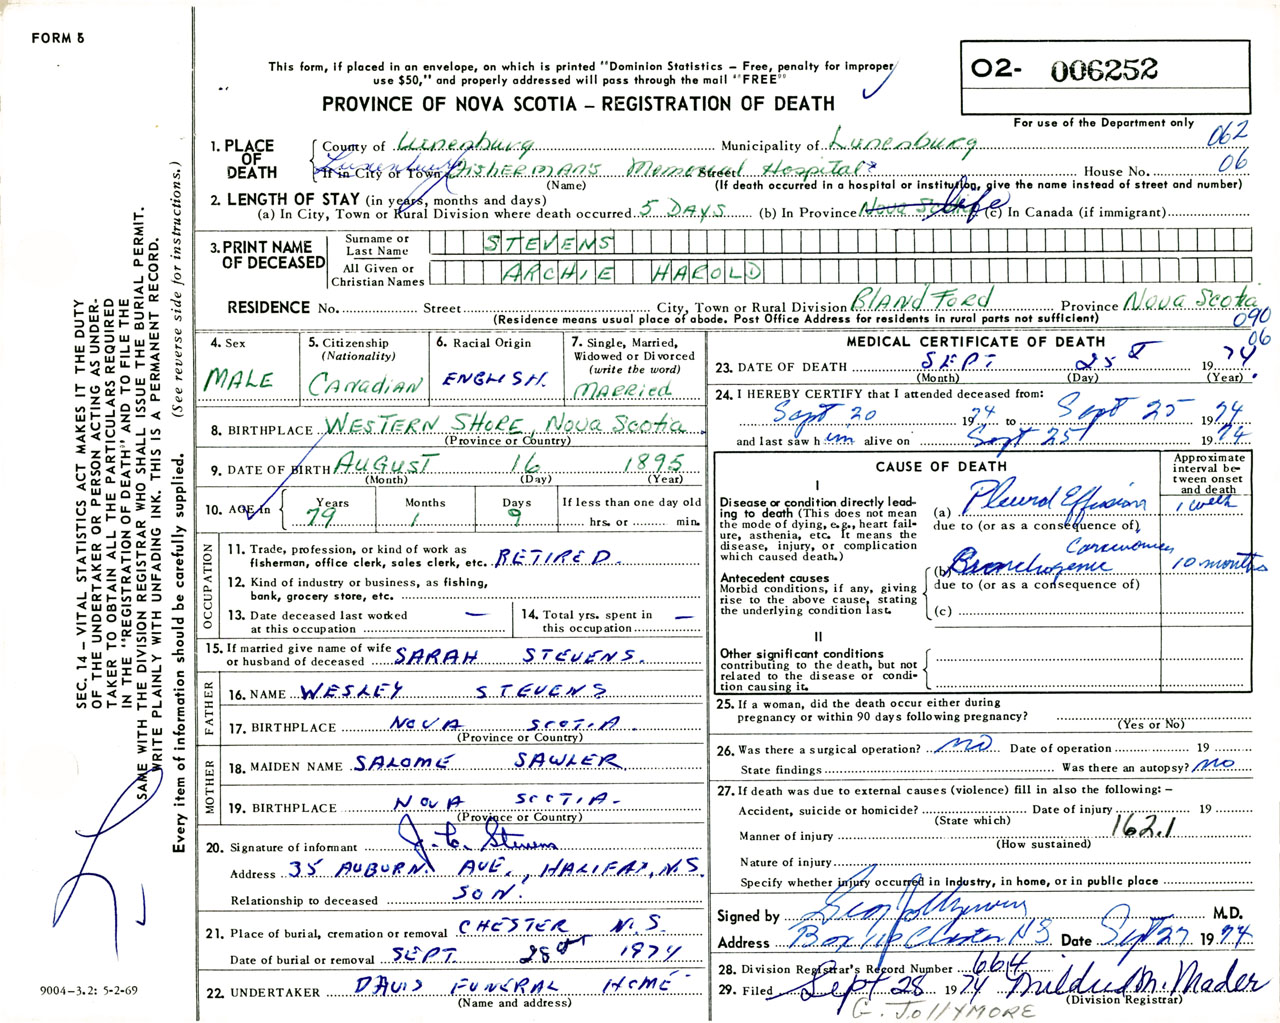 FORM 5
This form, if placed in an envelope, on which is printed "Dominion Statistics – Free, penalty for improper
use $50," and properly addressed will pass through the mail "FREE"
PROVINCE OF NOVA SCOTIA – REGISTRATION OF DEATH
O2- 006252
For use of the Department only
062
06
1. PLACE OF DEATH
County of Lunenburg Municipality of Lunenburg
If in City of Town Fisherman's Memorial Hospital Street House No.
(Name) (If death occurred in a hospital or institution, give the name instead of street and number)
2. LENGTH OF STAY (in years, months and days)
(a) In City, Town or Rural Division where death occurred 5 DAYS (b) In Province Nova Scotia life (c) In Canada (if immigrant)
3. PRINT NAME OF DECEASED
Surname or Last Name STEVENS
All Given or Christian Names ARCHIE HAROLD
RESIDENCE No. Street City, Town or Rural Division BLANDFORD Province NOVA SCOTIA
(Residence means usual place of abode. Post Office Address for residents in rural parts not sufficient)
090
06
4. Sex MALE
5. Citizenship (Nationality) CANADIAN
6. Racial Origin ENGLISH.
7. Single, Married, Widowed or Divorced (write the word) MARRIED
8. BIRTHPLACE WESTERN SHORE, NOVA SCOTIA
(Province or Country)
9. DATE OF BIRTH AUGUST 16 1895
(Month) (Day) (Year)
10. AGE in Years 79 Months 1 Days 9 If less than one day old hrs. or min.
OCCUPATION
11. Trade, profession, or kind of work as
fisherman, office clerk, sales clerk, etc. RETIRED.
12. Kind of industry or business, as fishing,
bank, grocery store, etc.
13. Date deceased last worked
at this occupation —
14. Total yrs. spent in
this occupation —
15. If married give name of wife
or husband of deceased SARAH STEVENS.
FATHER
16. NAME WESLEY STEVENS
17. BIRTHPLACE NOVA SCOTIA
(Province or Country)
MOTHER
18. MAIDEN NAME SALOME SAWLER
19. BIRTHPLACE NOVA SCOTIA.
(Province or Country)
20. Signature of informant J. C. Stevens
Address 35 AUBURN AVE., HALIFAX, N.S.
Relationship to deceased SON.
21. Place of burial, cremation or removal CHESTER N.S.
Date of burial or removal SEPT 28 1974
22. UNDERTAKER DAVIS FUNERAL HOME
(Name and address)
MEDICAL CERTIFICATE OF DEATH
23. DATE OF DEATH SEPT 25 1974.
(Month) (Day) (Year)
24. I HEREBY CERTIFY that I attended deceased from:
Sept 20 1974 to Sept 25 1974
and last saw him alive on Sept 25 1974
CAUSE OF DEATH
Approximate interval between onset and death
I
Disease or condition directly leading to death (This does not mean the mode of dying, e.g., heart failure, asthenia, etc. It means the disease, injury, or complication which caused death.)
(a) Pleural Effusion 1 week
due to (or as a consequence of)
Antecedent causes
Morbid conditions, if any, giving rise to the above cause, stating the underlying condition last.
(b) Bronchogenic Carcinoma 10 months
due to (or as a consequence of)
(c)
II
Other significant conditions
contributing to the death, but not related to the disease or condition causing it.
25. If a woman, did the death occur either during
pregnancy or within 90 days following pregnancy?
(Yes or No)
26. Was there a surgical operation? no Date of operation 19
State findings Was there an autopsy? no
27. If death was due to external causes (violence) fill in also the following: –
Accident, suicide or homicide? Date of injury 19
(State which)
Manner of injury 162.1
(How sustained)
Nature of injury
Specify whether injury occurred in industry, in home, or in public place
Signed by Geo Jollymore M.D.
Address Box 116 Chester NS Date Sept 27 1974
28. Division Registrar's Record Number 664
29. Filed Sept 28 1974 Mildred M. Mader
(Division Registrar)
G. JOLLYMORE
SEC. 14 – VITAL STATISTICS ACT MAKES IT THE DUTY
OF THE UNDERTAKER OR PERSON ACTING AS UNDER-
TAKER TO OBTAIN ALL THE PARTICULARS REQUIRED
IN THE "REGISTRATION OF DEATH" AND TO FILE THE
SAME WITH THE DIVISION REGISTRAR WHO SHALL ISSUE THE BURIAL PERMIT.
WRITE PLAINLY WITH UNFADING INK. THIS IS A PERMANENT RECORD.
Every item of information should be carefully supplied. (See reverse side for instructions.)
9004-3.2: 5-2-69